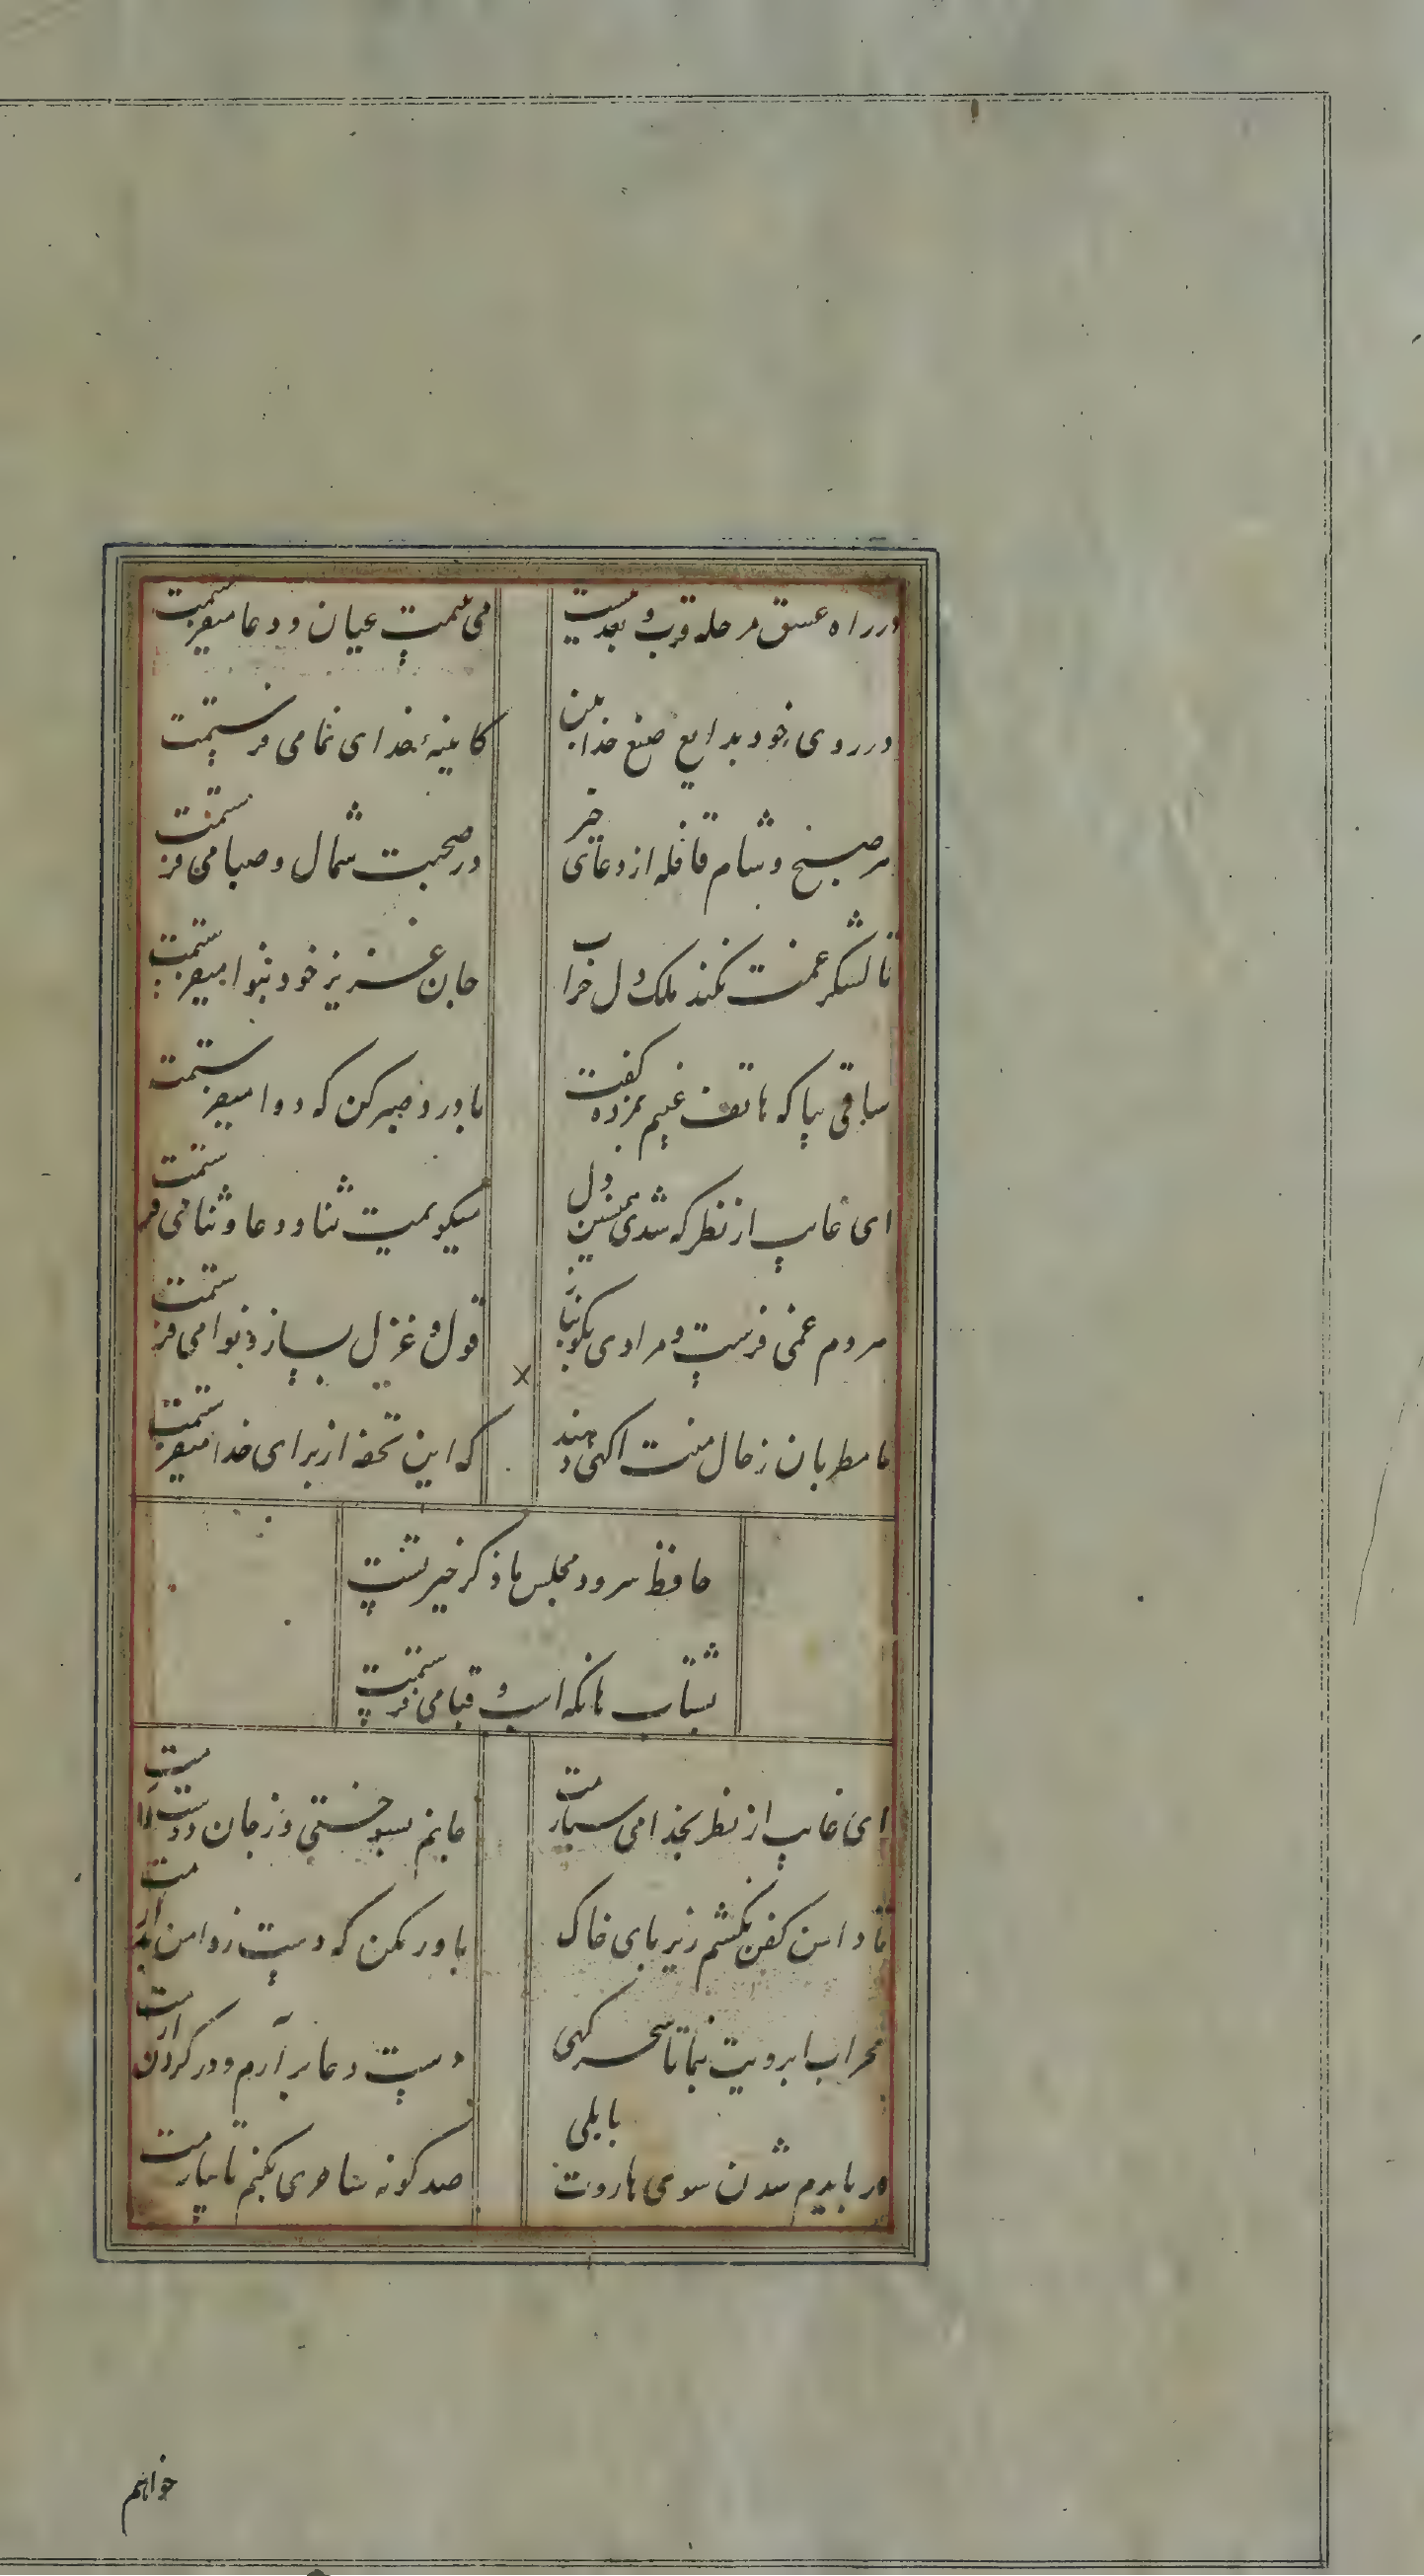 در راه عشق مرحله قرب و بعد نیست
می بینمت عیان و دعا میفرستمت
در روی خود بدایع صنع خدا ببین
کایینهٔ خدای نما می فرستمت
هر صبح و شام قافله از دعای خیر
در صحبت شمال و صبا می فرستمت
تا لشکر غمت نکند ملک دل خراب
جان عزیز خود بنوا میفرستمت
ساقی بیا که هاتف غیبم بمژده گفت
با درد صبر کن که دوا میفرستمت
ای غایب از نظر که شدی همنشین دل
میگویمت ثنا و دعا و ثنا می فرستمت
هر دم غمی فرست و مرا دی بگو بناز
قول و غزل بساز و نوا می فرستمت
تا مطربان ز حال منت اگهی دهند
که این تحفه از برای خدا میفرستمت
حافظ سرود مجلس ما ذکر خیر تست
بشتاب هانکه اسب و قبا می فرستمت
ای غایب از نظر بخدا می سپارمت
جانم بسوختی و ز جان دوست دارمت
تا دامن کفن نکشم زیر پای خاک
باور مکن که دست ز دامن بدارمت
محراب ابرویت بنما تا سحرگهی
دست دعا بر آرم و در گردن ارمت
گر بایدم شدن سوی هاروت بابلی
صد گونه ساحری بکنم تا بیارمت
خواهم